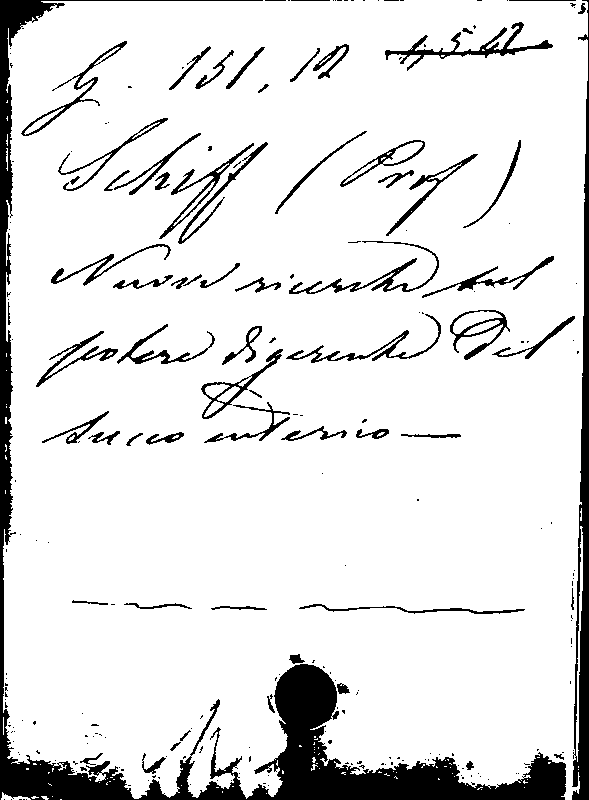 G. 151, 12 4.5.42
Schiff (Prof)
Nuove ricerche sul
potere digerente del
succo enterico —